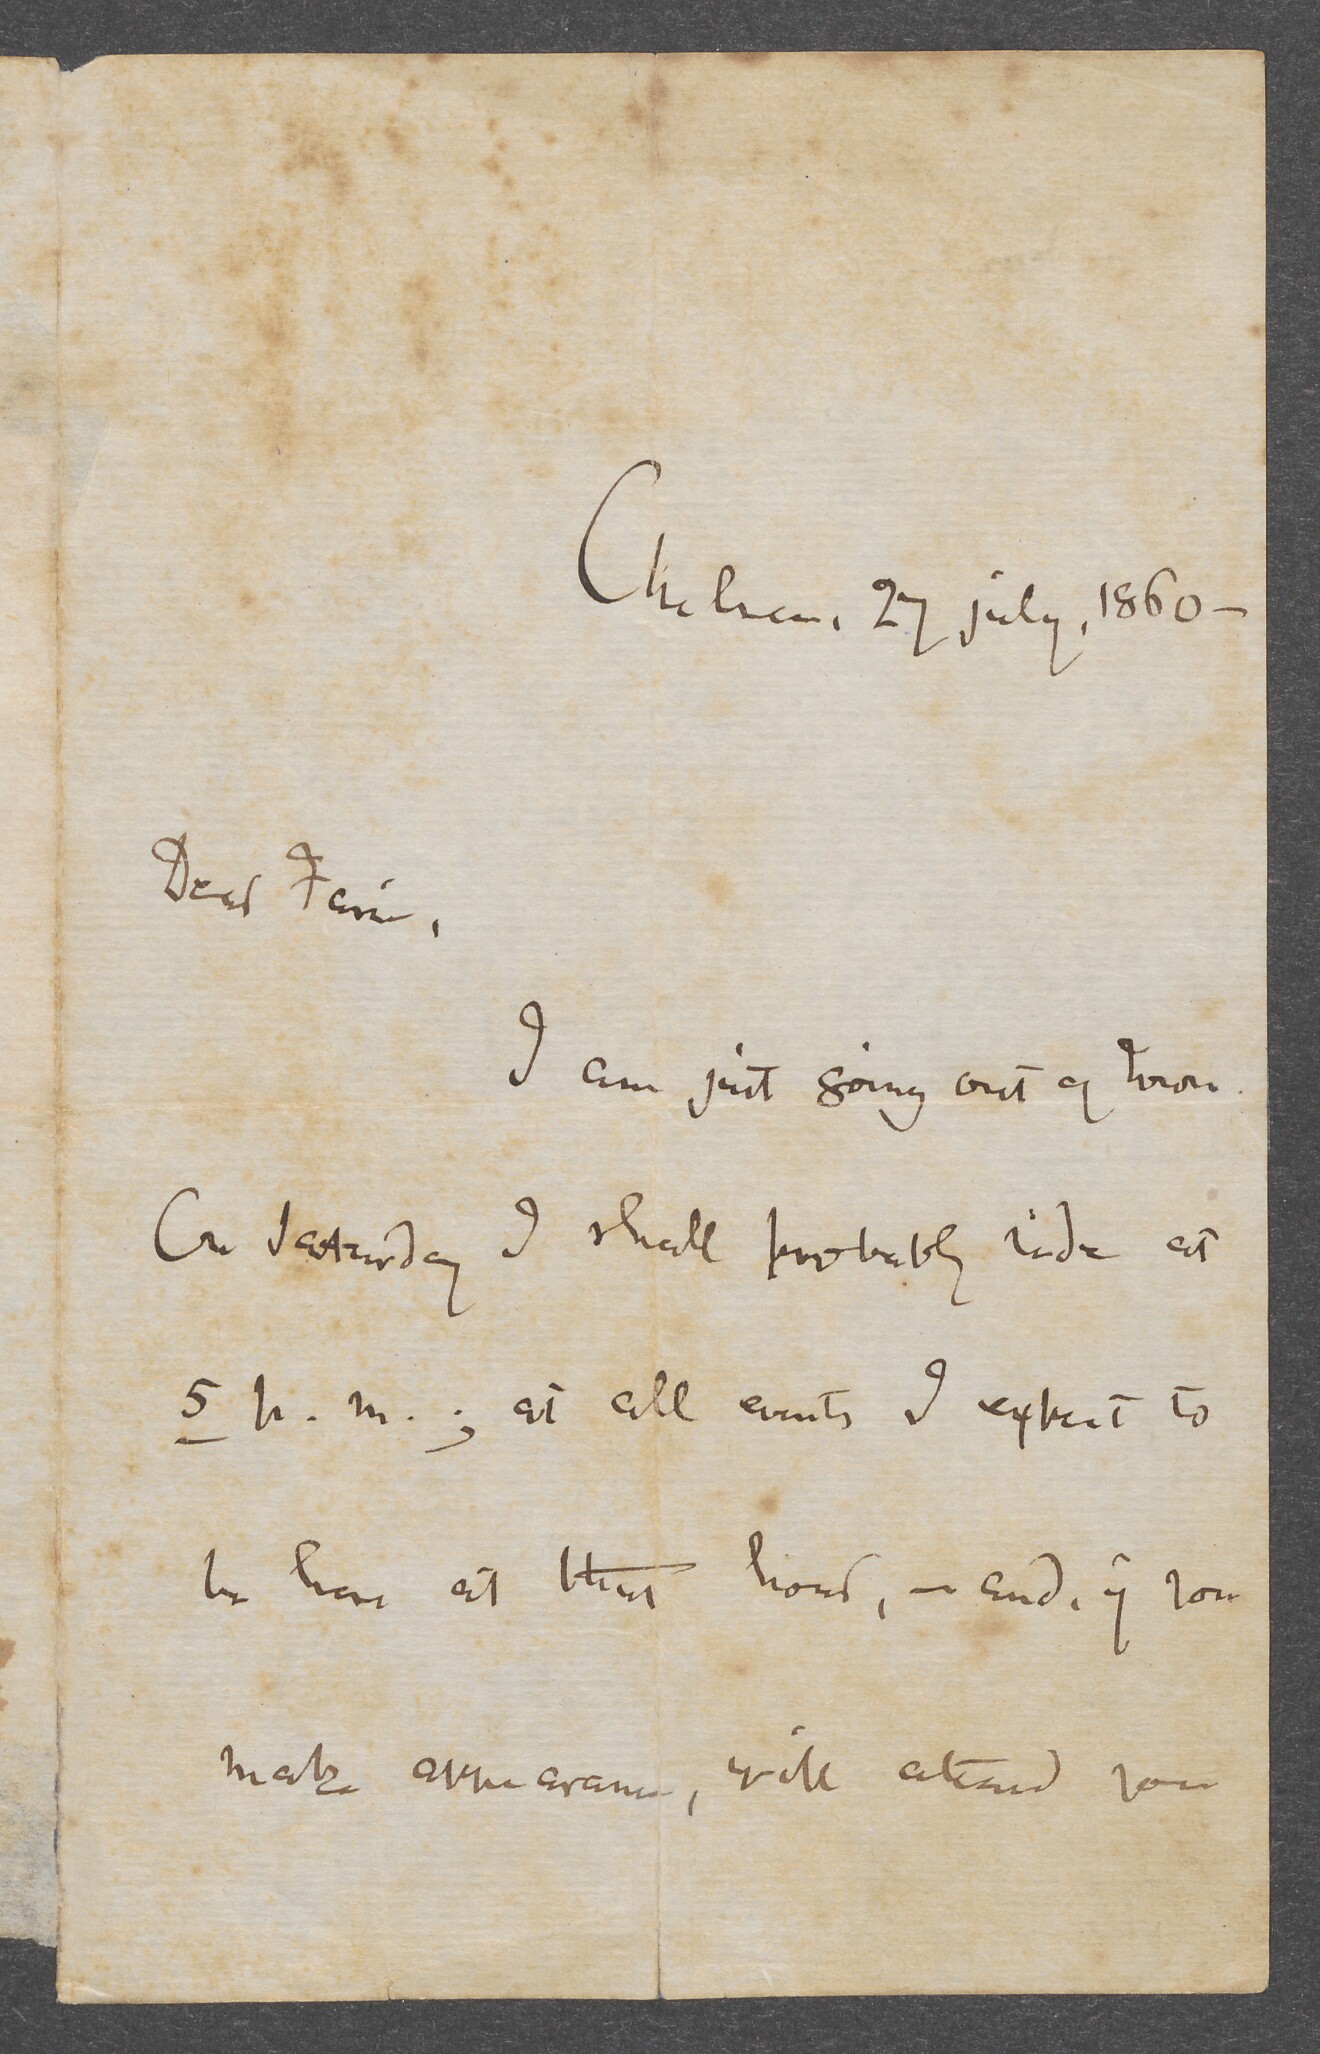 Chelsea, 27 july, 1860 –
Dear Fairie,
I am just going out of town.
On Saturday I shall probably ride at
5 p. m. ; at all events I expect to
be here at that hour, – and, if you
make appearance, will attend you